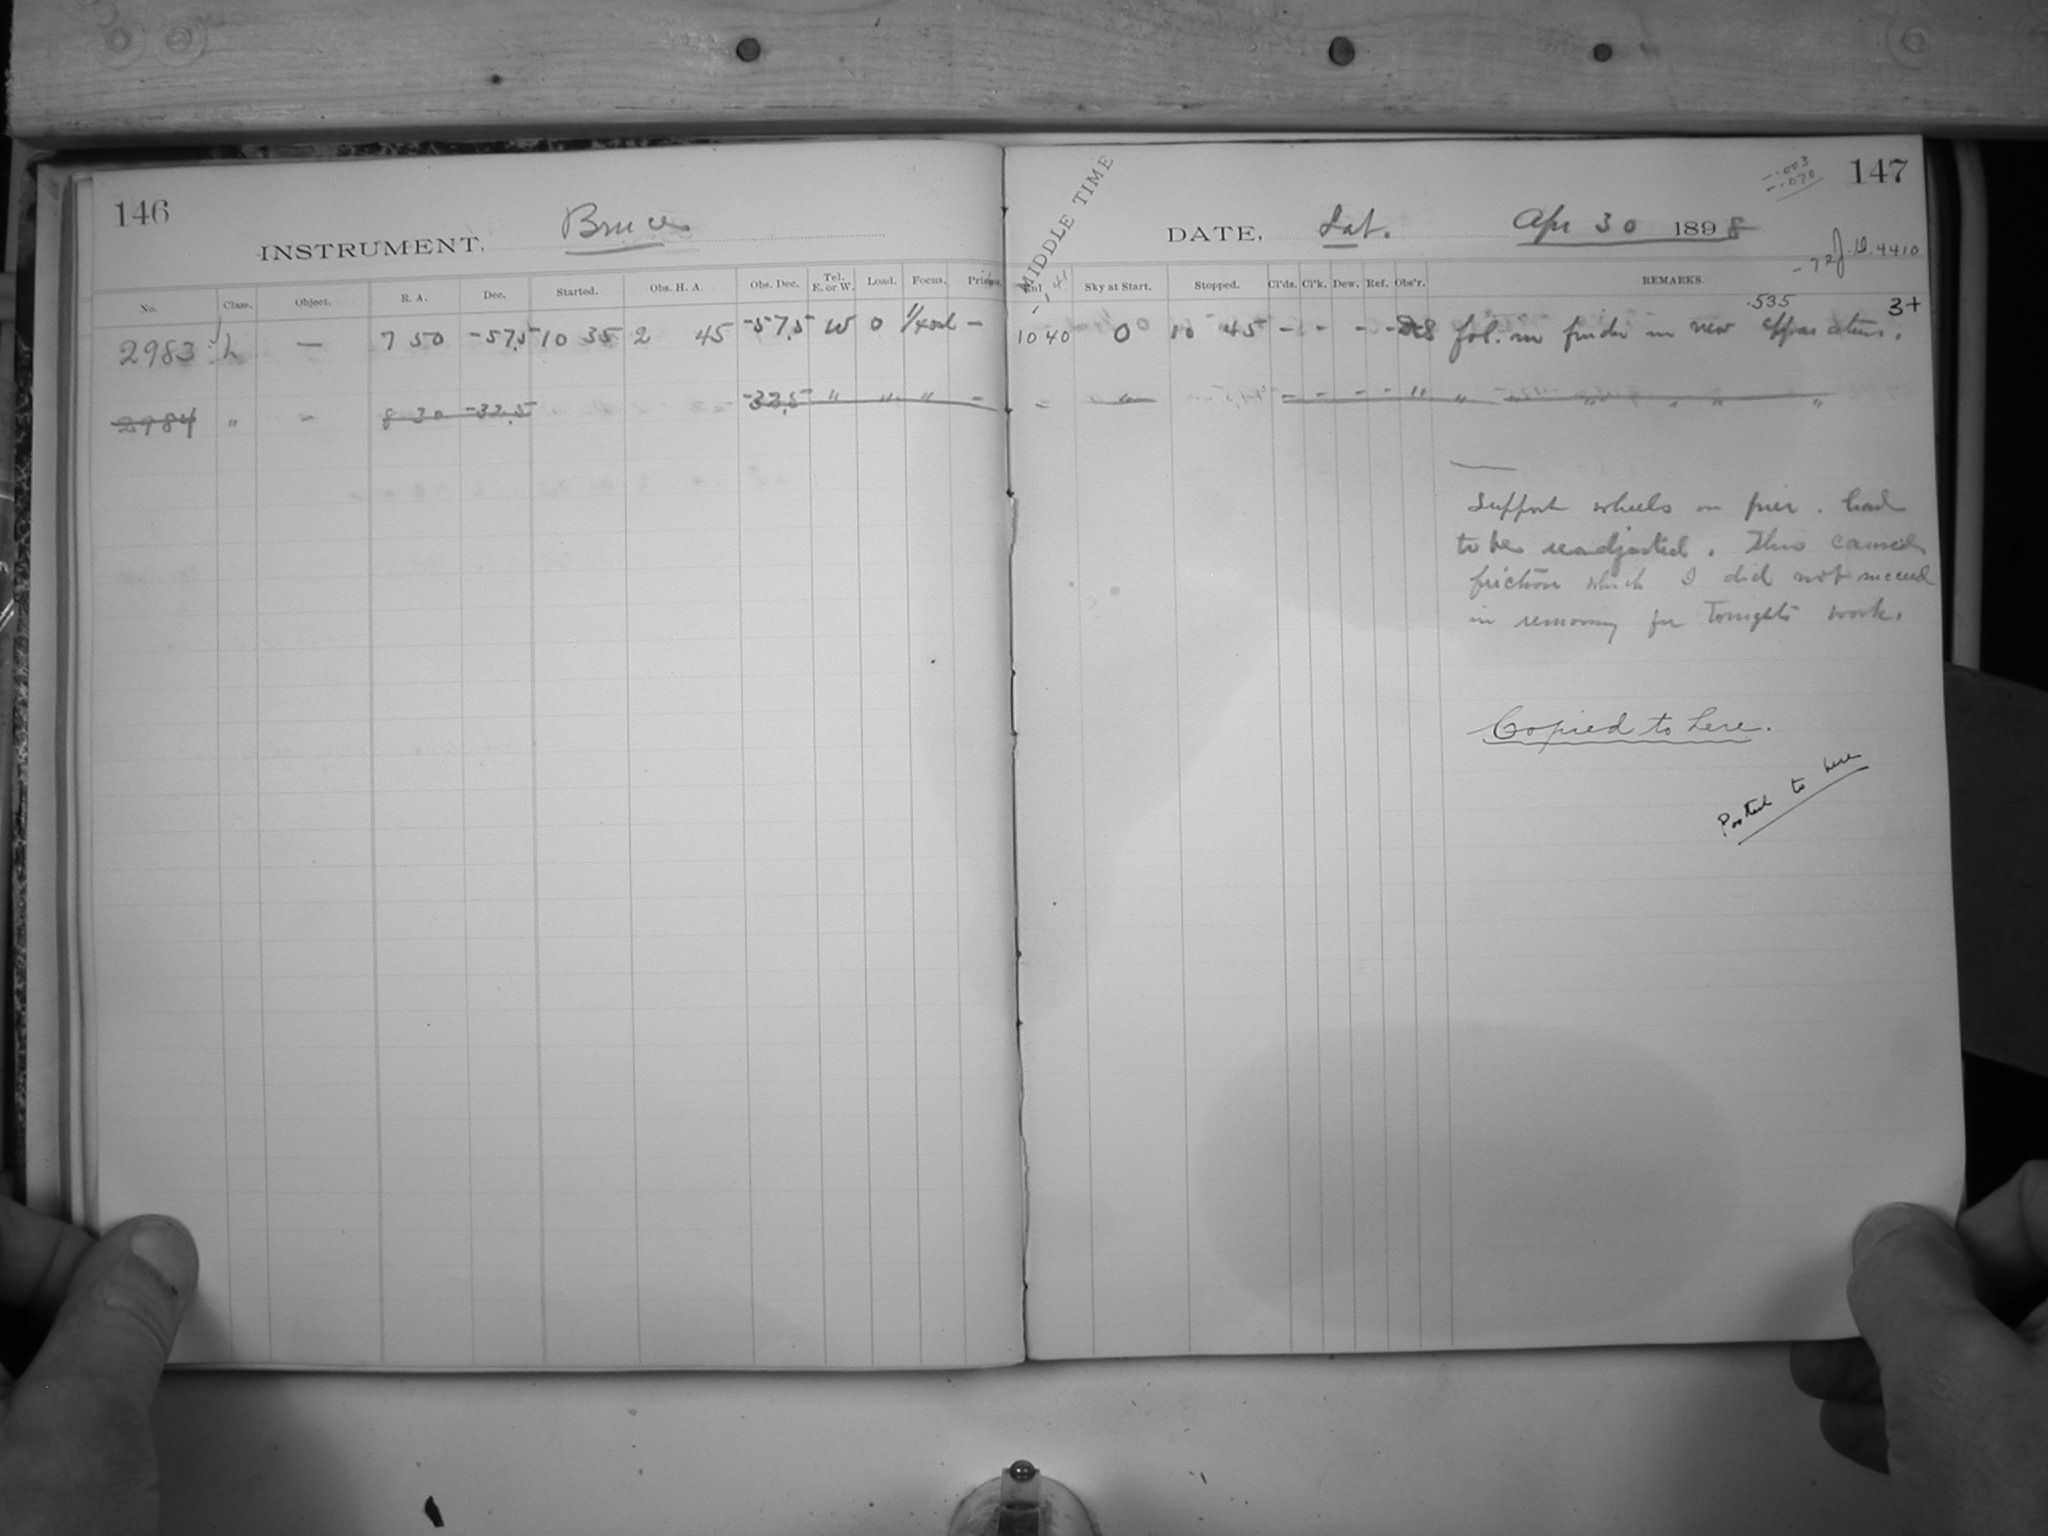 146
INSTRUMENT, Bruce
No. Class. Object. R. A. Dec. Started. Obs. H. A. Obs. Dec. Tel. E. or W. Load. Focus.
2983 L — 7 50 -57.5 10 35 2 45 -57.5 W 0 —
2984 " - 8 30 -32.5 -32.5 " " " -
MIDDLE TIME
-.003
-.070
147
DATE, Sat. Apr 30 1898
J.D. 4410
Sky at Start. Stopped. Cl'ds. Cl'k. Dew. Ref. Obs'r. REMARKS.
.535 3+
10 40 0 10 45 - - - - fol. in finder in new
- " - - - - " " " " " "
Support wheels on pier. had
to be readjusted. This caused
friction which I did not succeed
in removing for Tonights work.
Copied to here.
Posted to here